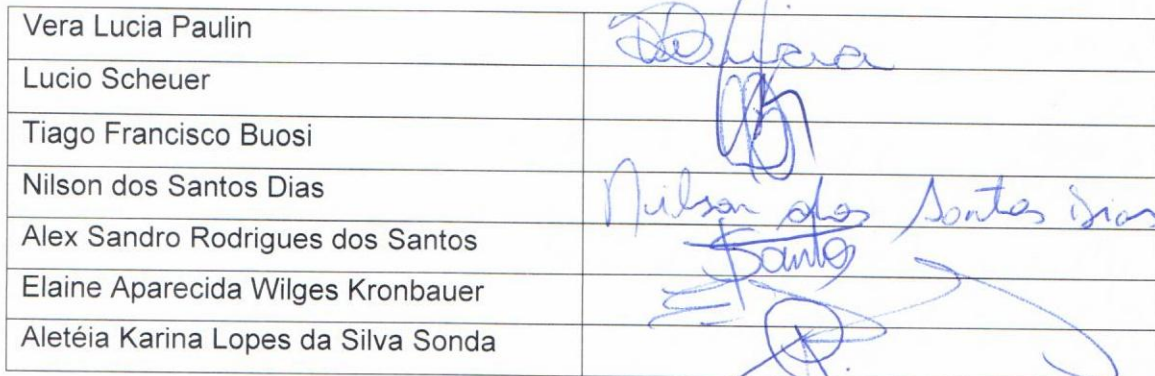 Vera Lucia Paulin
Lucio Scheuer
Tiago Francisco Buosi
Nilson dos Santos Dias Nilson dos Santos Dias
Alex Sandro Rodrigues dos Santos Santos
Elaine Aparecida Wilges Kronbauer
Aletéia Karina Lopes da Silva Sonda